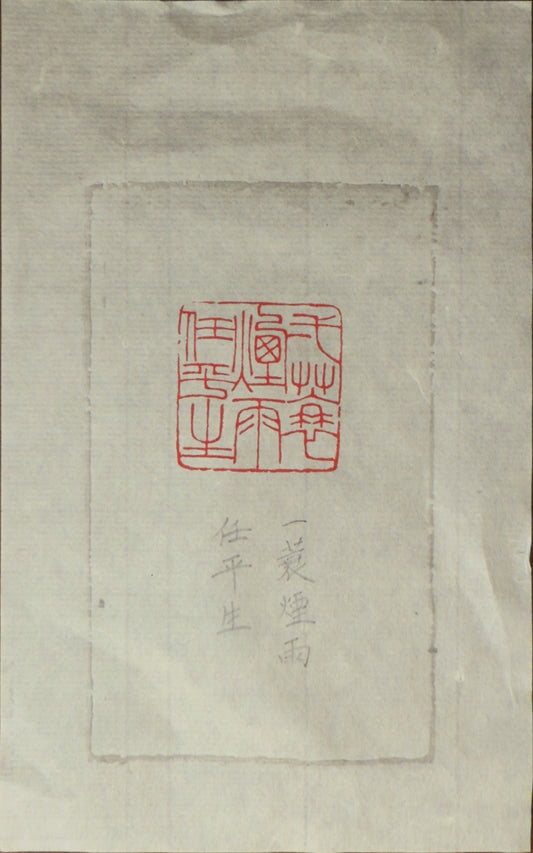 弌蓑
煙雨
任平生
一蓑煙雨
任平生